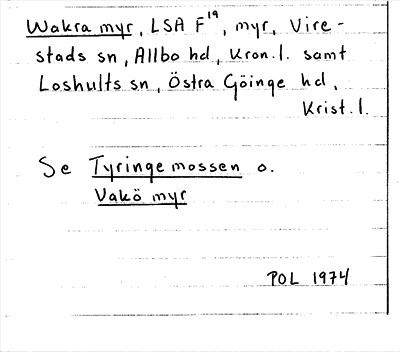 Wakra myr, LSA F¹⁹, myr, Vire-
stads sn, Allbo hd, Kron. l. samt
Loshults sn, Östra Göinge hd,
Krist. l.
Se Tyringemossen o.
Vakö myr
POL 1974